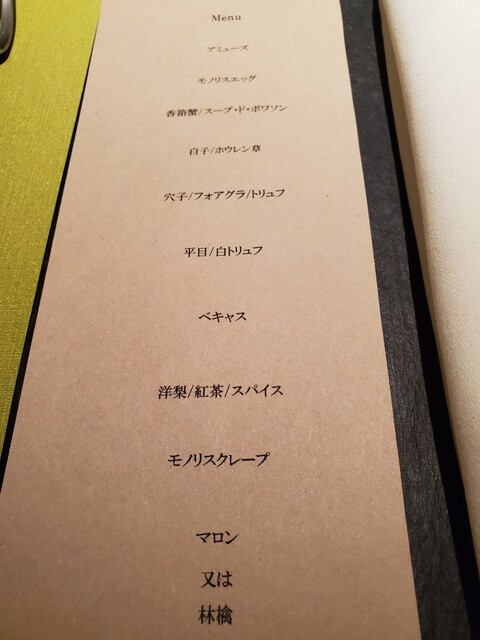 Menu
アミューズ
モノリスエッグ
香箱蟹/スープ・ド・ポワソン
白子/ホウレン草
穴子/フォアグラ/トリュフ
平目/白トリュフ
ベキャス
洋梨/紅茶/スパイス
モノリスクレープ
マロン
又は
林檎